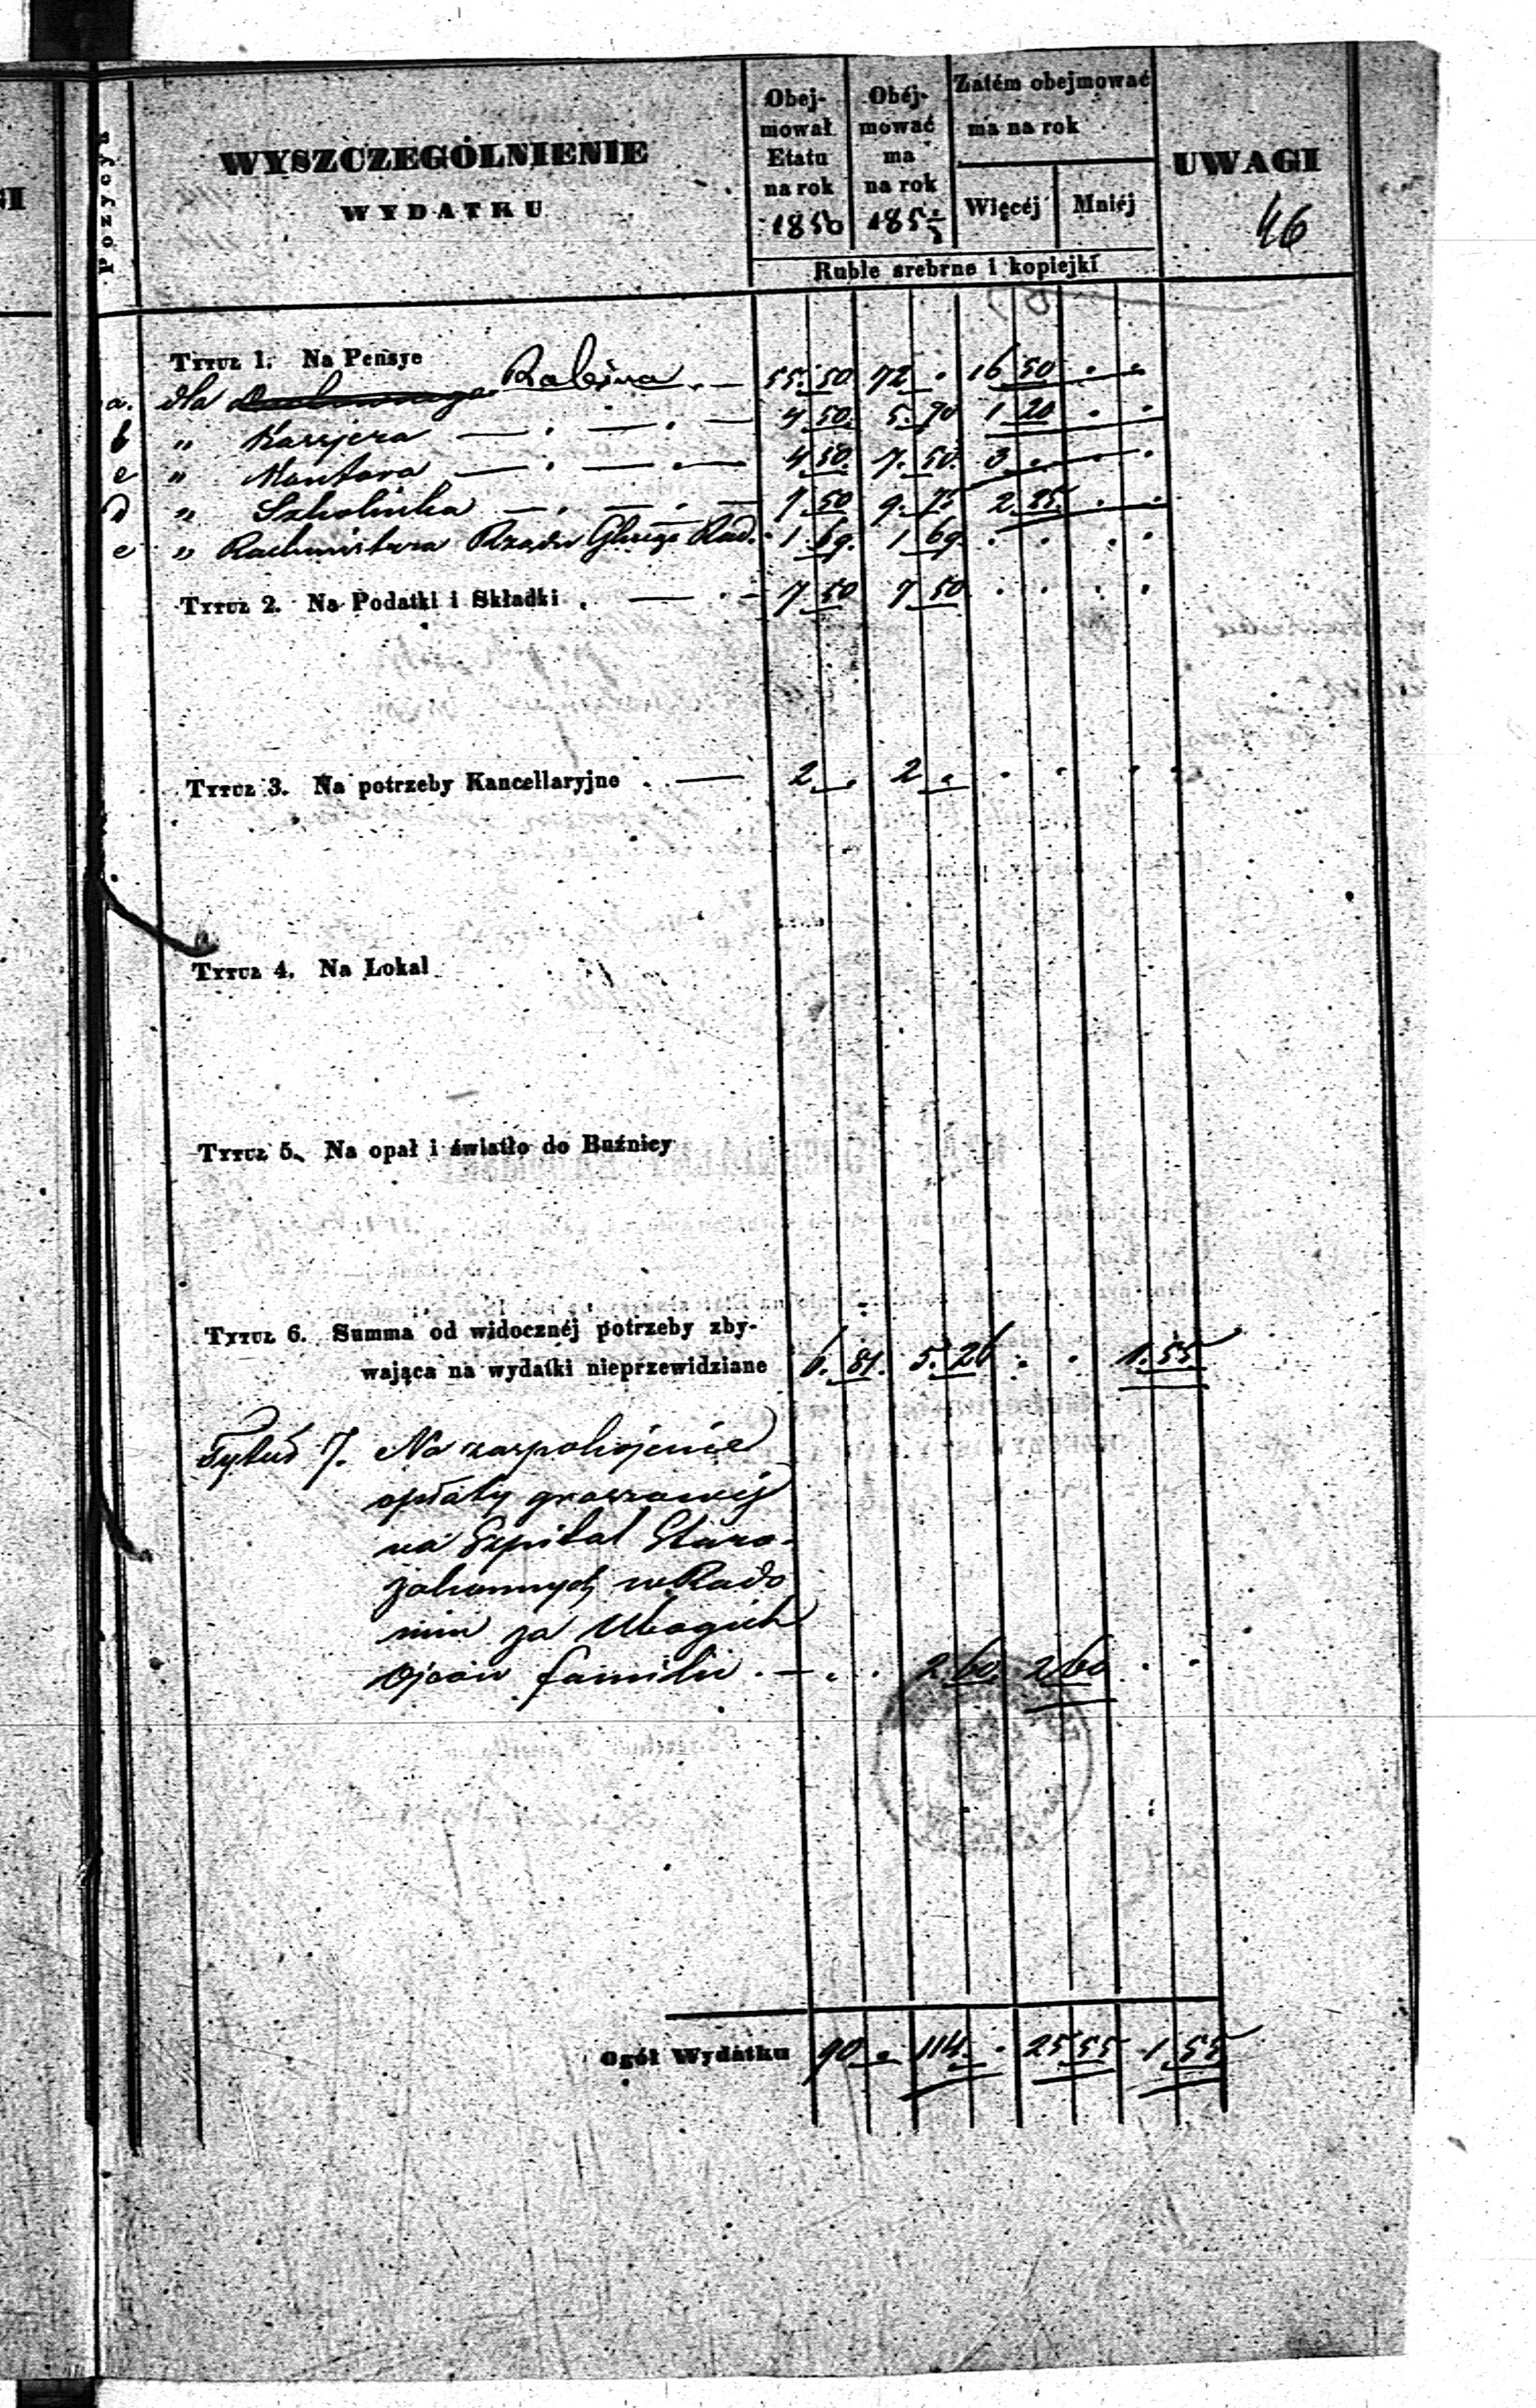 GI
Pozycya
WYSZCZEGÓLNIENIE
WYDATKU
Obej-
mował
Etatu
na rok
1850
Obéj-
mować
ma
na rok
185 1/3
Zatém obejmować
ma na rok
Więcéj
Mniéj
UWAGI
46
Ruble srebrne i kopiejki
TYTUŁ 1. Na Pensye
a. dla Rabina . — 55. 50 72 . 16 50 . .
b " Kassjera — . — . — 4 50. 5. 70 1 20 . .
c " Kantora — . — . — 4 50. 7. 50. 3 . . .
d " Szkolnika — . — . — 7 50 9. 75 2 25. . .
e " Rachmistrza Rządu Gło Rad. 1. 69. 1 69. . . . .
TYTUŁ 2. Na Podatki i Składki . — . - 7 50 7 50 . . . .
TYTUŁ 3. Na potrzeby Kancellaryjne . — 2 . 2 . . . . .
TYTUŁ 4. Na Lokal
TYTUŁ 5. Na opał i światło do Bużnicy
TYTUŁ 6. Summa od widocznéj potrzeby zby-
wająca na wydatki nieprzewidziane 6. 81. 5. 26 . . 1. 55
Tytuł 7. Na zaspokojenie
opłaty groszowej
na Szpital Staro-
zakonnych w Rado
miu za Ubogich
Ojców familii . — . . 2. 60. 2 60 . .
Ogół Wydatku 90 . 114. . 25 55 1 55